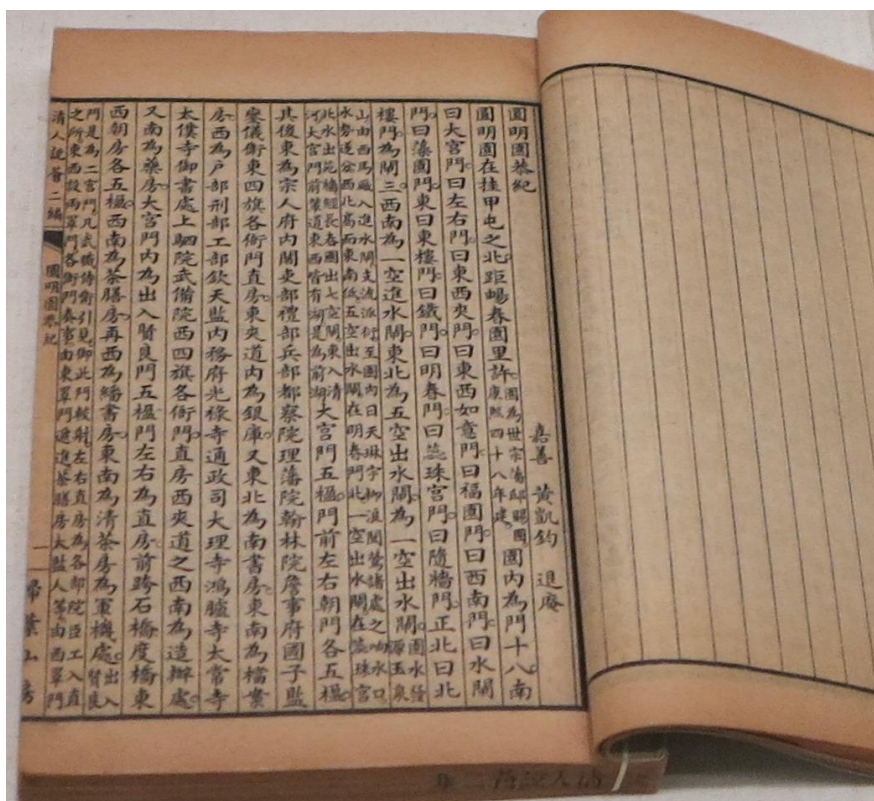 圓明園恭紀
嘉善　黃凱鈞　退庵
圓明園在掛甲屯之北距暢春園里許園為世宗藩邸賜園康熙四十八年建園內為門十八南
曰大宮門曰左右門曰東西夾門曰東西如意門曰福園門曰西南門曰水閘
門曰藻園門東曰東樓門曰鐵門曰明春門曰蕊珠宮門曰隨牆門正北曰北
樓門為閘三西南為一空進水閘東北為五空出水閘為一空出水閘園水發源玉泉
山由西馬廠入進水閘支流派衍至園內日天琳宇柳浪聞鶯諸處之响水口
水勢遂分西北高而東南低五空出水閘在明春門北一空出水閘在蕊珠宮
北水出苑牆經長春園出七空閘東入清
河大宮門前輦道東西皆有湖是為前湖大宮門五楹門前左右朝門各五楹
其後東為宗人府內閣吏部禮部兵部都察院理藩院翰林院詹事府國子監
鑾儀衛東四旗各衙門直房東夾道內為銀庫又東北為南書房東南為檔案
房西為戶部刑部工部欽天監內務府光祿寺通政司大理寺鴻臚寺太常寺
太僕寺御書處上駟院武備院西四旗各衙門直房西夾道之西南為造辦處
又南為藥房大宮門內為出入賢良門五楹門左右為直房前跨石橋度橋東
西朝房各五楹西南為茶膳房再西為繙書房東南為清茶房為軍機處出入賢良
門是為二宮門凡武職侍衛引見御此門較射左右直房為各部院臣工入直
之所東西設兩罩門各衙門奏事由東罩門遞進茶膳房太監人等由西罩門
清人說薈二編
圓明園恭紀
一
掃葉山房